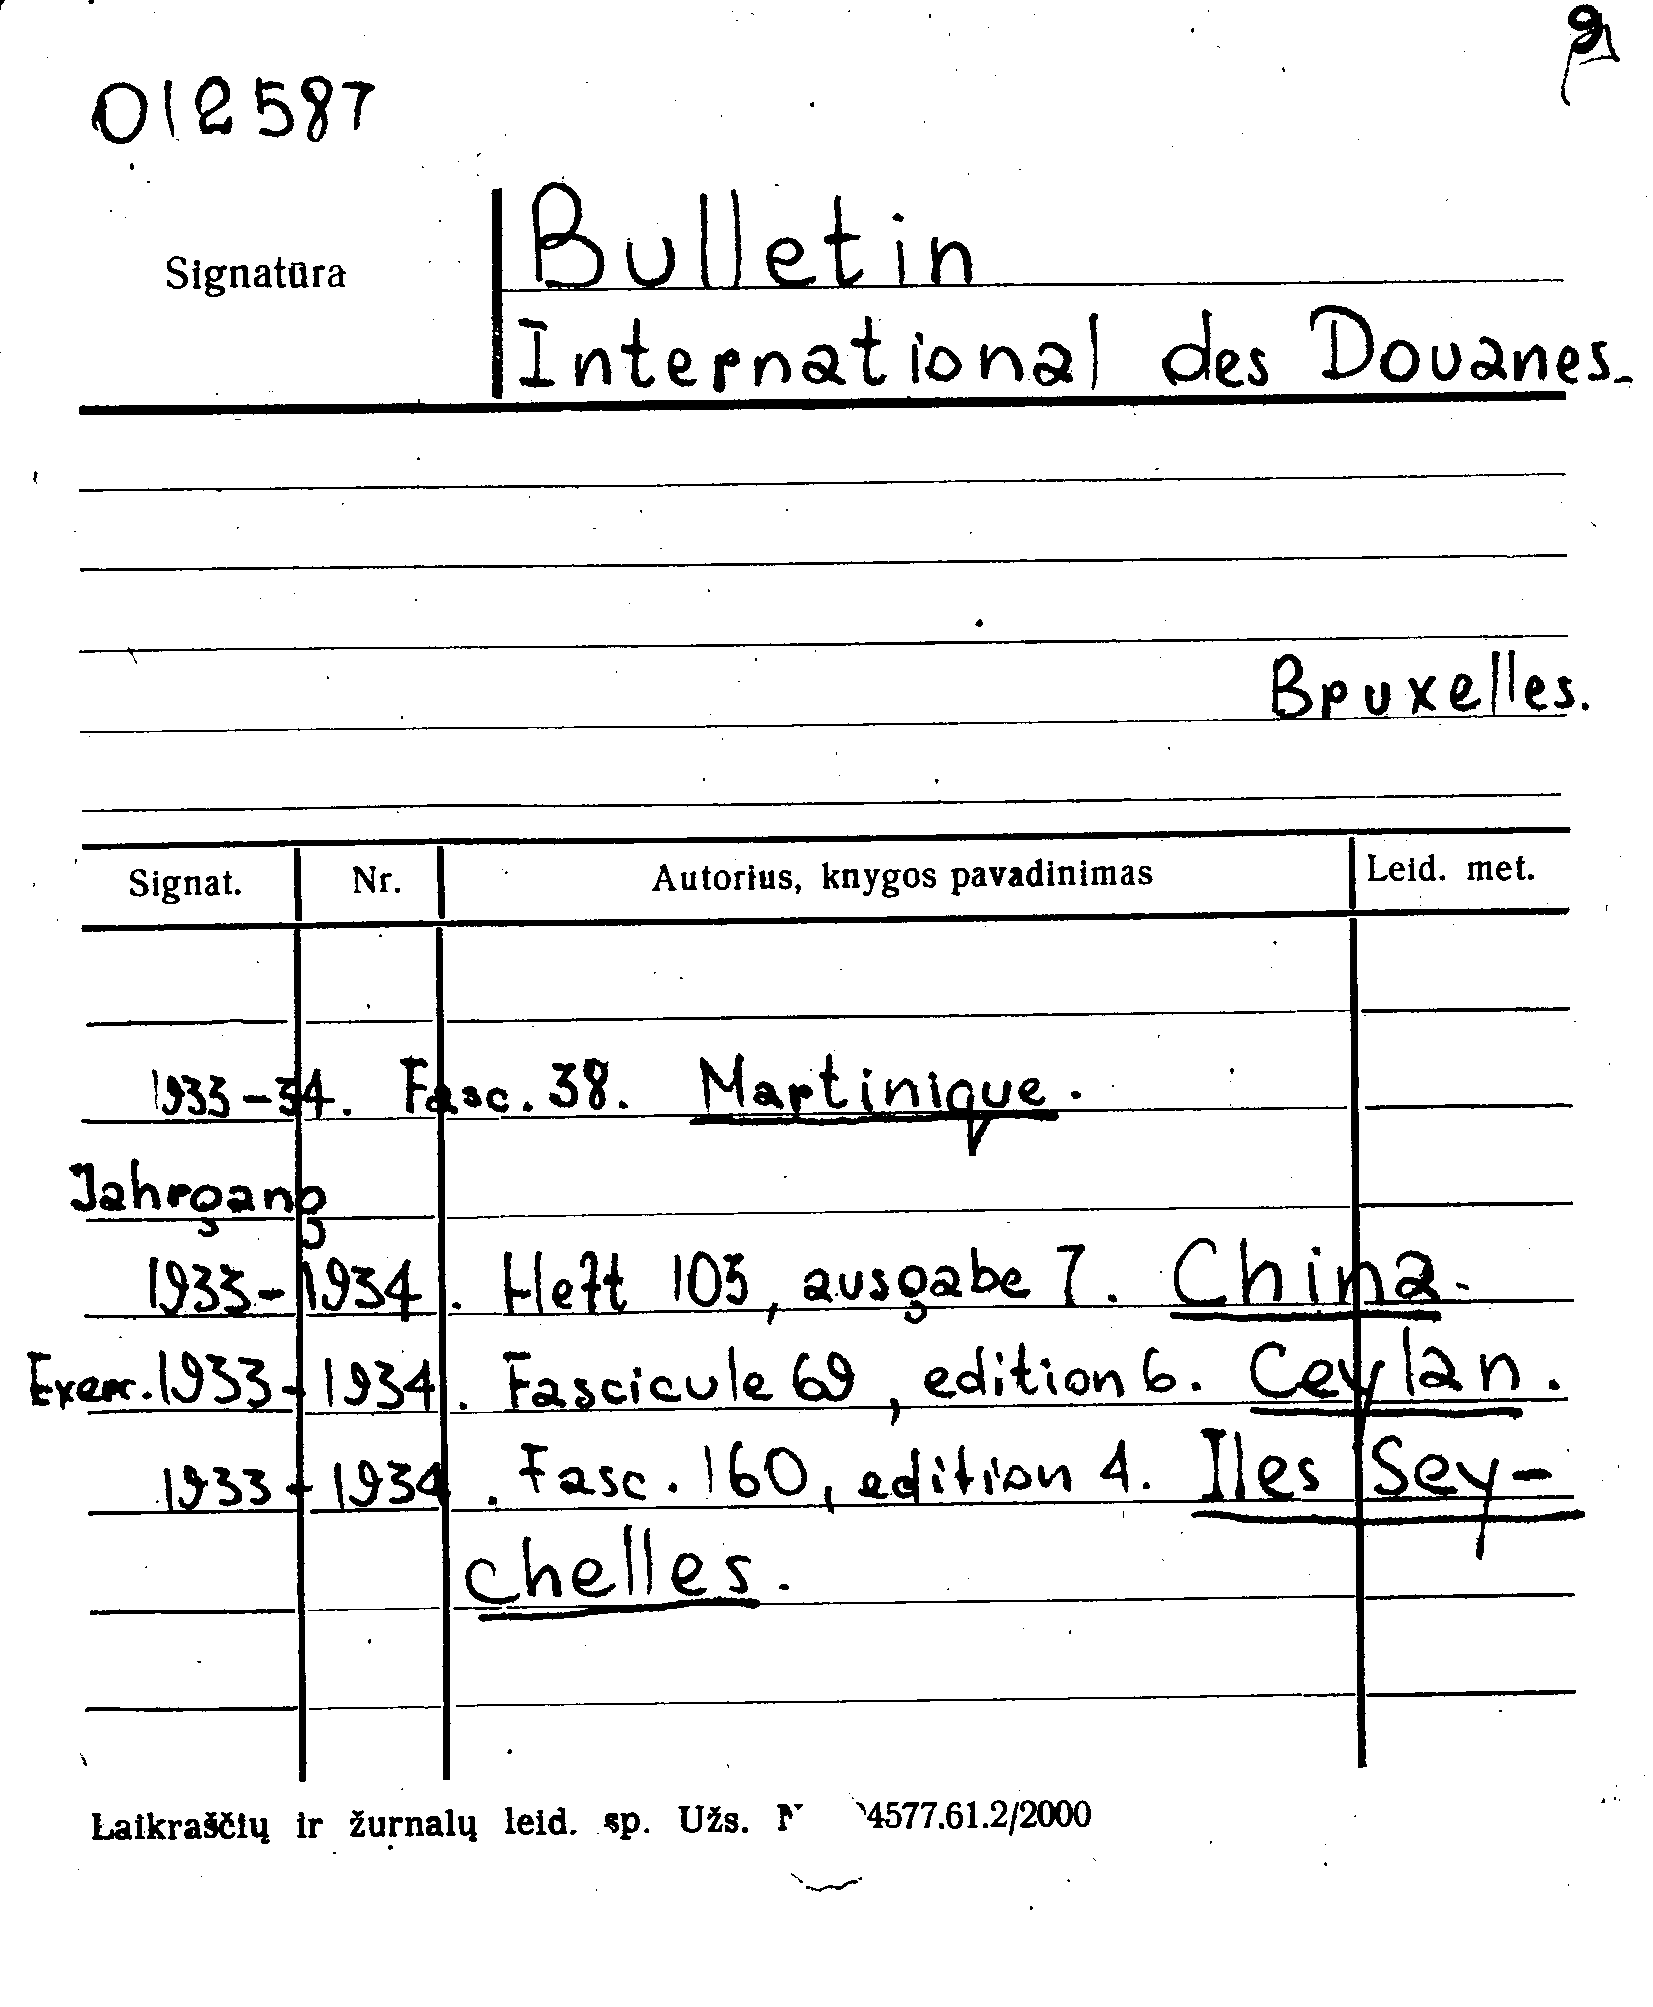 012587
Signatūra
Bulletin
International des Douanes.
Bruxelles.
Signat. Nr. Autorius, knygos pavadinimas Leid. met.
1933-34. Fasc. 38. Martinique.
Jahrgang
1933-1934. Heft 103, ausgabe 7. China.
Exerc. 1933-1934. Fascicule 69, edition 6. Ceylan.
1933-1934. Fasc. 160, edition 4. Iles Sey-
chelles.
Laikraščių ir žurnalų leid. sp. Užs. 4577.61.2/2000